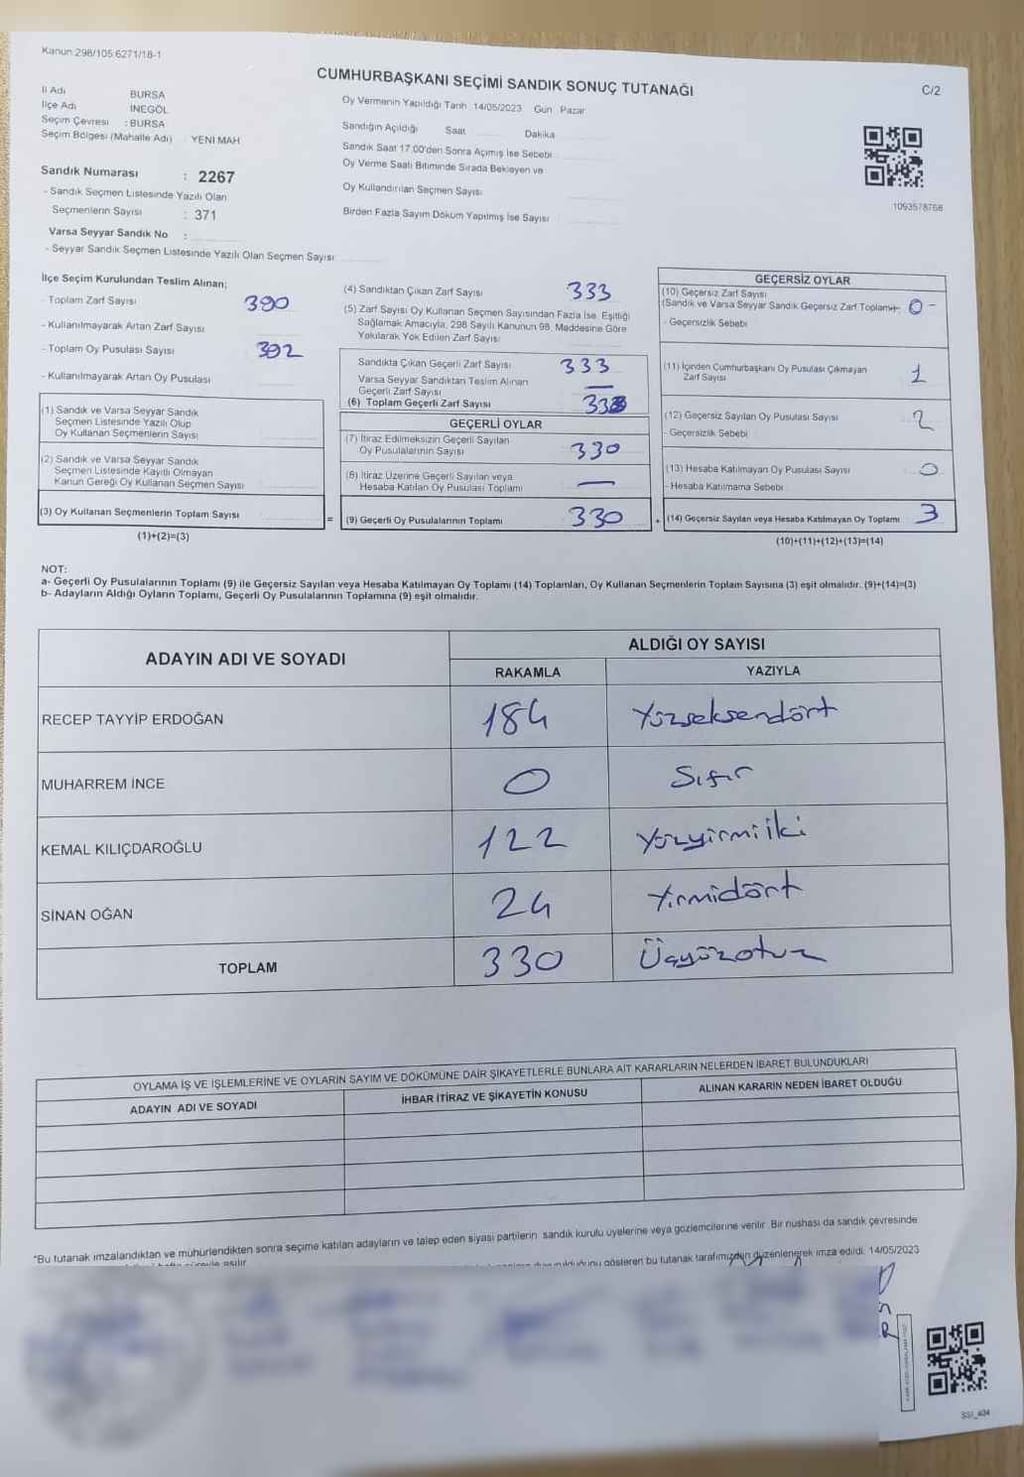 Kanun 298/105 6271/18-1
CUMHURBAŞKANI SEÇİMİ SANDIK SONUÇ TUTANAĞI
C/2
İl Adı BURSA
İlçe Adı İNEGÖL
Seçim Çevresi : BURSA
Seçim Bölgesi (Mahalle Adı) YENİ MAH
Oy Vermenin Yapıldığı Tarih 14/05/2023 Gün Pazar
Sandığın Açıldığı Saat Dakika
Sandık Saat 17.00'den Sonra Açılmış İse Sebebi
Oy Verme Saati Bitiminde Sırada Bekleyen ve
Oy Kullandırılan Seçmen Sayısı
Birden Fazla Sayım Döküm Yapılmış İse Sayısı
1093578768
Sandık Numarası : 2267
- Sandık Seçmen Listesinde Yazılı Olan
Seçmenlerin Sayısı : 371
Varsa Seyyar Sandık No :
- Seyyar Sandık Seçmen Listesinde Yazılı Olan Seçmen Sayısı
İlçe Seçim Kurulundan Teslim Alınan;
- Toplam Zarf Sayısı 390
- Kullanılmayarak Artan Zarf Sayısı
- Toplam Oy Pusulası Sayısı 392
- Kullanılmayarak Artan Oy Pusulası
(1) Sandık ve Varsa Seyyar Sandık
Seçmen Listesinde Yazılı Olup
Oy Kullanan Seçmenlerin Sayısı
(2) Sandık ve Varsa Seyyar Sandık
Seçmen Listesinde Kayıtlı Olmayan
Kanun Gereği Oy Kullanan Seçmen Sayısı
(3) Oy Kullanan Seçmenlerin Toplam Sayısı
(1)+(2)=(3)
(4) Sandıktan Çıkan Zarf Sayısı 333
(5) Zarf Sayısı Oy Kullanan Seçmen Sayısından Fazla İse, Eşitliği
Sağlamak Amacıyla, 298 Sayılı Kanunun 98. Maddesine Göre
Yakılarak Yok Edilen Zarf Sayısı
Sandıkta Çıkan Geçerli Zarf Sayısı 333
Varsa Seyyar Sandıktan Teslim Alınan
Geçerli Zarf Sayısı —
(6) Toplam Geçerli Zarf Sayısı 333
GEÇERLİ OYLAR
(7) İtiraz Edilmeksizin Geçerli Sayılan
Oy Pusulalarının Sayısı 330
(8) İtiraz Üzerine Geçerli Sayılan veya
Hesaba Katılan Oy Pusulası Toplamı —
= (9) Geçerli Oy Pusulalarının Toplamı 330
GEÇERSİZ OYLAR
(10) Geçersiz Zarf Sayısı
(Sandık ve Varsa Seyyar Sandık Geçersiz Zarf Toplamı) 0 -
- Geçersizlik Sebebi
(11) İçinden Cumhurbaşkanı Oy Pusulası Çıkmayan
Zarf Sayısı 1
(12) Geçersiz Sayılan Oy Pusulası Sayısı 2
- Geçersizlik Sebebi
(13) Hesaba Katılmayan Oy Pusulası Sayısı 0
- Hesaba Katılmama Sebebi
+ (14) Geçersiz Sayılan veya Hesaba Katılmayan Oy Toplamı 3
(10)+(11)+(12)+(13)=(14)
NOT:
a- Geçerli Oy Pusulalarının Toplamı (9) ile Geçersiz Sayılan veya Hesaba Katılmayan Oy Toplamı (14) Toplamları, Oy Kullanan Seçmenlerin Toplam Sayısına (3) eşit olmalıdır. (9)+(14)=(3)
b- Adayların Aldığı Oyların Toplamı, Geçerli Oy Pusulalarının Toplamına (9) eşit olmalıdır.
ADAYIN ADI VE SOYADI ALDIĞI OY SAYISI
RAKAMLA YAZIYLA
RECEP TAYYİP ERDOĞAN 184 Yüzseksendört
MUHARREM İNCE 0 Sıfır
KEMAL KILIÇDAROĞLU 122 Yüzyirmiiki
SİNAN OĞAN 24 Yirmidört
TOPLAM 330 Üçyüzotuz
OYLAMA İŞ VE İŞLEMLERİNE VE OYLARIN SAYIM VE DÖKÜMÜNE DAİR ŞİKAYETLERLE BUNLARA AİT KARARLARIN NELERDEN İBARET BULUNDUKLARI
ADAYIN ADI VE SOYADI İHBAR İTİRAZ VE ŞİKAYETİN KONUSU ALINAN KARARIN NEDEN İBARET OLDUĞU
*Bu tutanak imzalandıktan ve mühürlendikten sonra seçime katılan adayların ve talep eden siyasi partilerin sandık kurulu üyelerine veya gözlemcilerine verilir. Bir nüshası da sandık çevresinde
gösteren bu tutanak tarafımızdan düzenlenerek imza edildi. 14/05/2023